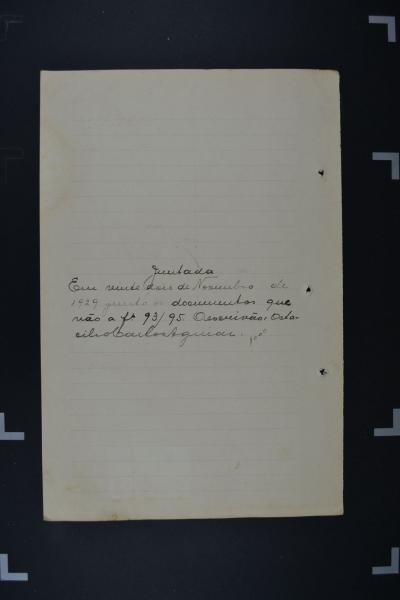 Juntada
Em vinte dois de Novembro de
1929 junto os documentos que
vão a fs 93/95. O escrivão, Octa-
cilio Carlos Aguiar.